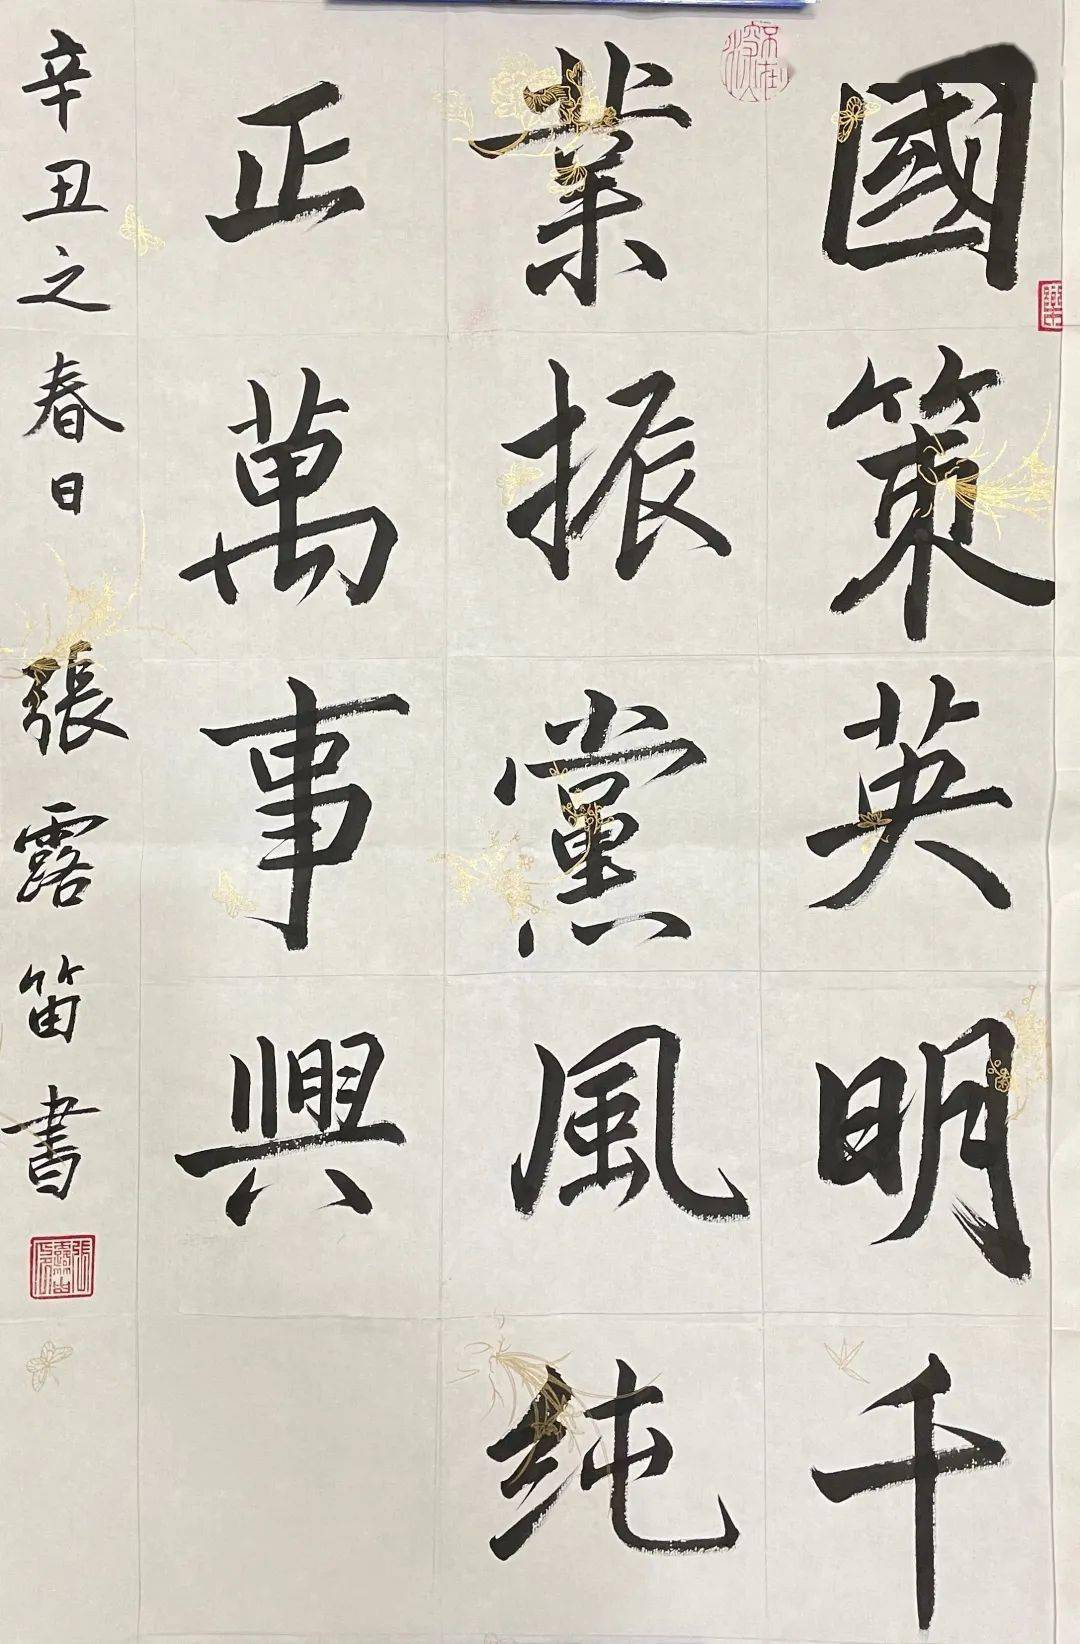 國策英明千
業振黨風纯
正萬事興
辛丑之春日 張露笛書